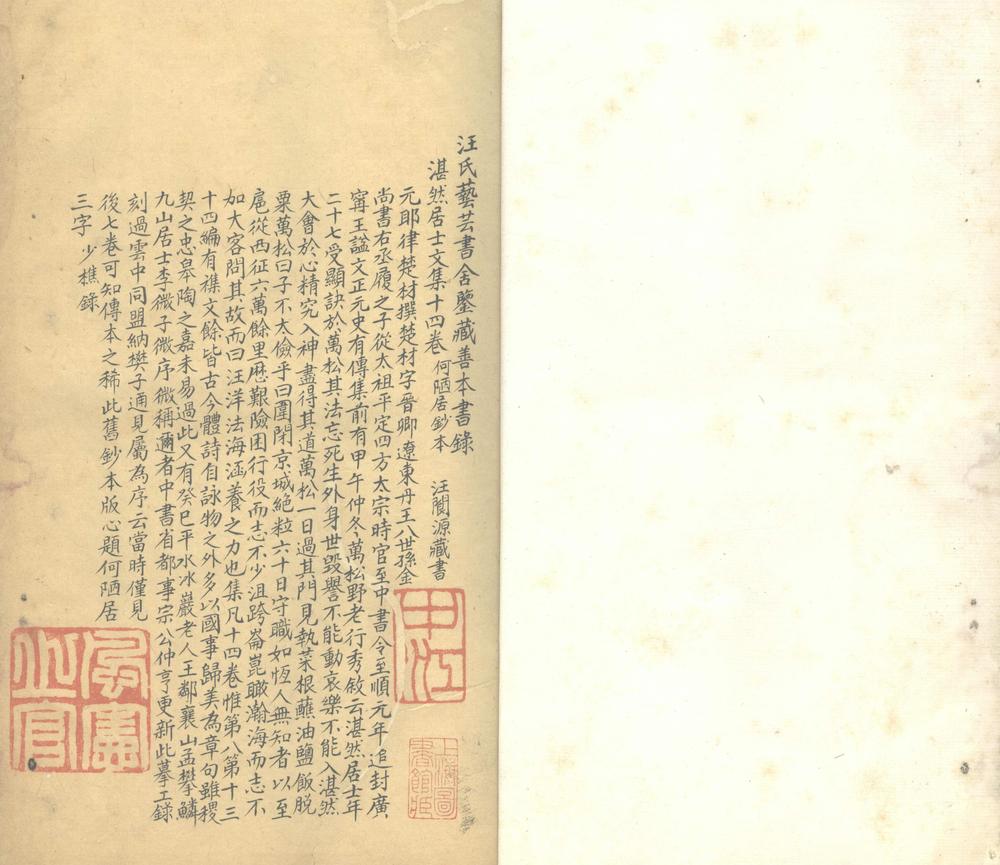 汪氏藝芸書舍鑒藏善本書錄
湛然居士文集十四卷 何陋居鈔本 汪閬源藏書
元耶律楚材撰楚材字晉卿遼東丹王八世孫金
尚書右丞履之子從太祖平定四方太宗時官至中書令至順元年追封廣
寗王諡文正元史有傳集前有甲午仲冬萬松野老行秀敘云湛然居士年
二十七受顯訣於萬松其法忘死生外身世毀譽不能動哀樂不能入湛然
大會於心精究入神盡得其道萬松一日過其門見執菜根蘸油鹽飯脱
粟萬松曰子不太儉乎曰圍閉京城絕粒六十日守職如恆人無知者以至
扈從西征六萬餘里歷艱險困行役而志不少沮跨崙崑瞰瀚海而志不
加大客問其故而曰汪洋法海涵養之力也集凡十四卷惟第八第十三
十四編有襍文餘皆古今體詩自詠物之外多以國事歸美為章句雖稷
契之忠皋陶之嘉未易過此又有癸巳平水冰巖老人王鄰襄山孟攀鱗
九山居士李微子微序微稱邇者中書省都事宗公仲亨更新此摹工錄
刻過雲中同盟納樊子通見屬為序云當時僅見
後七卷可知傳本之稀此舊鈔本版心題何陋居
三字 少樵錄